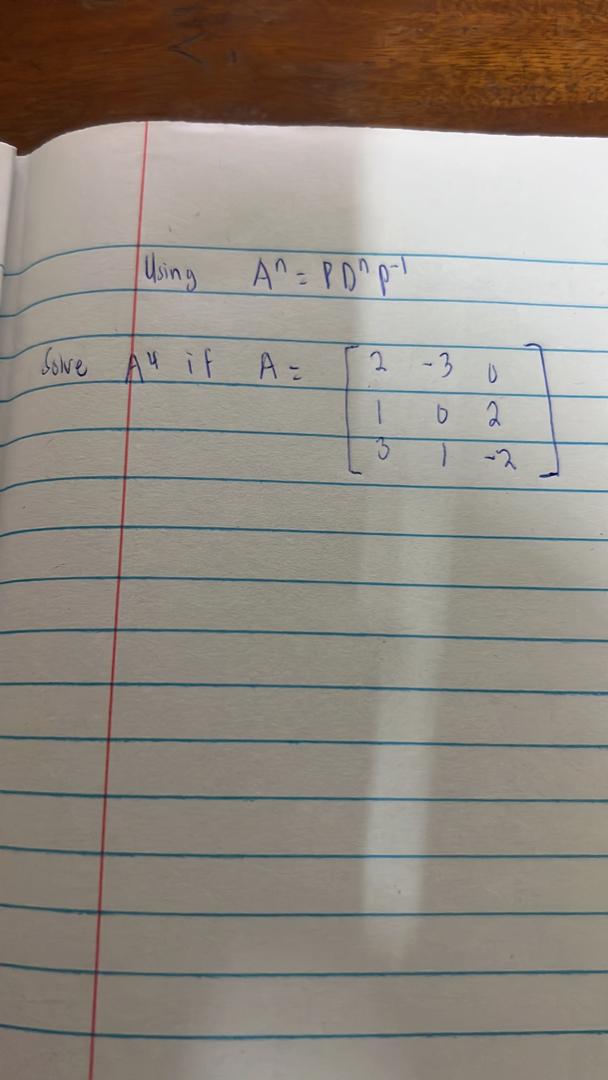 Using Aⁿ = PDⁿP⁻¹
Solve A⁴ if A = [2 -3 0
1 0 2
3 1 -2]